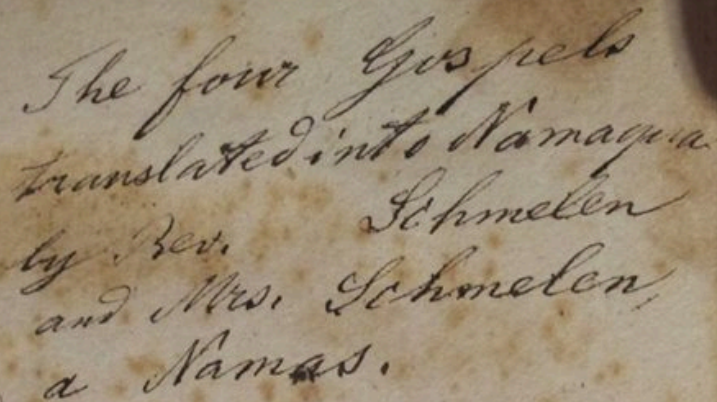 The four Gospels
translated into Namaqua
by Rev. Schmelen
and Mrs. Schmelen,
a Namas.